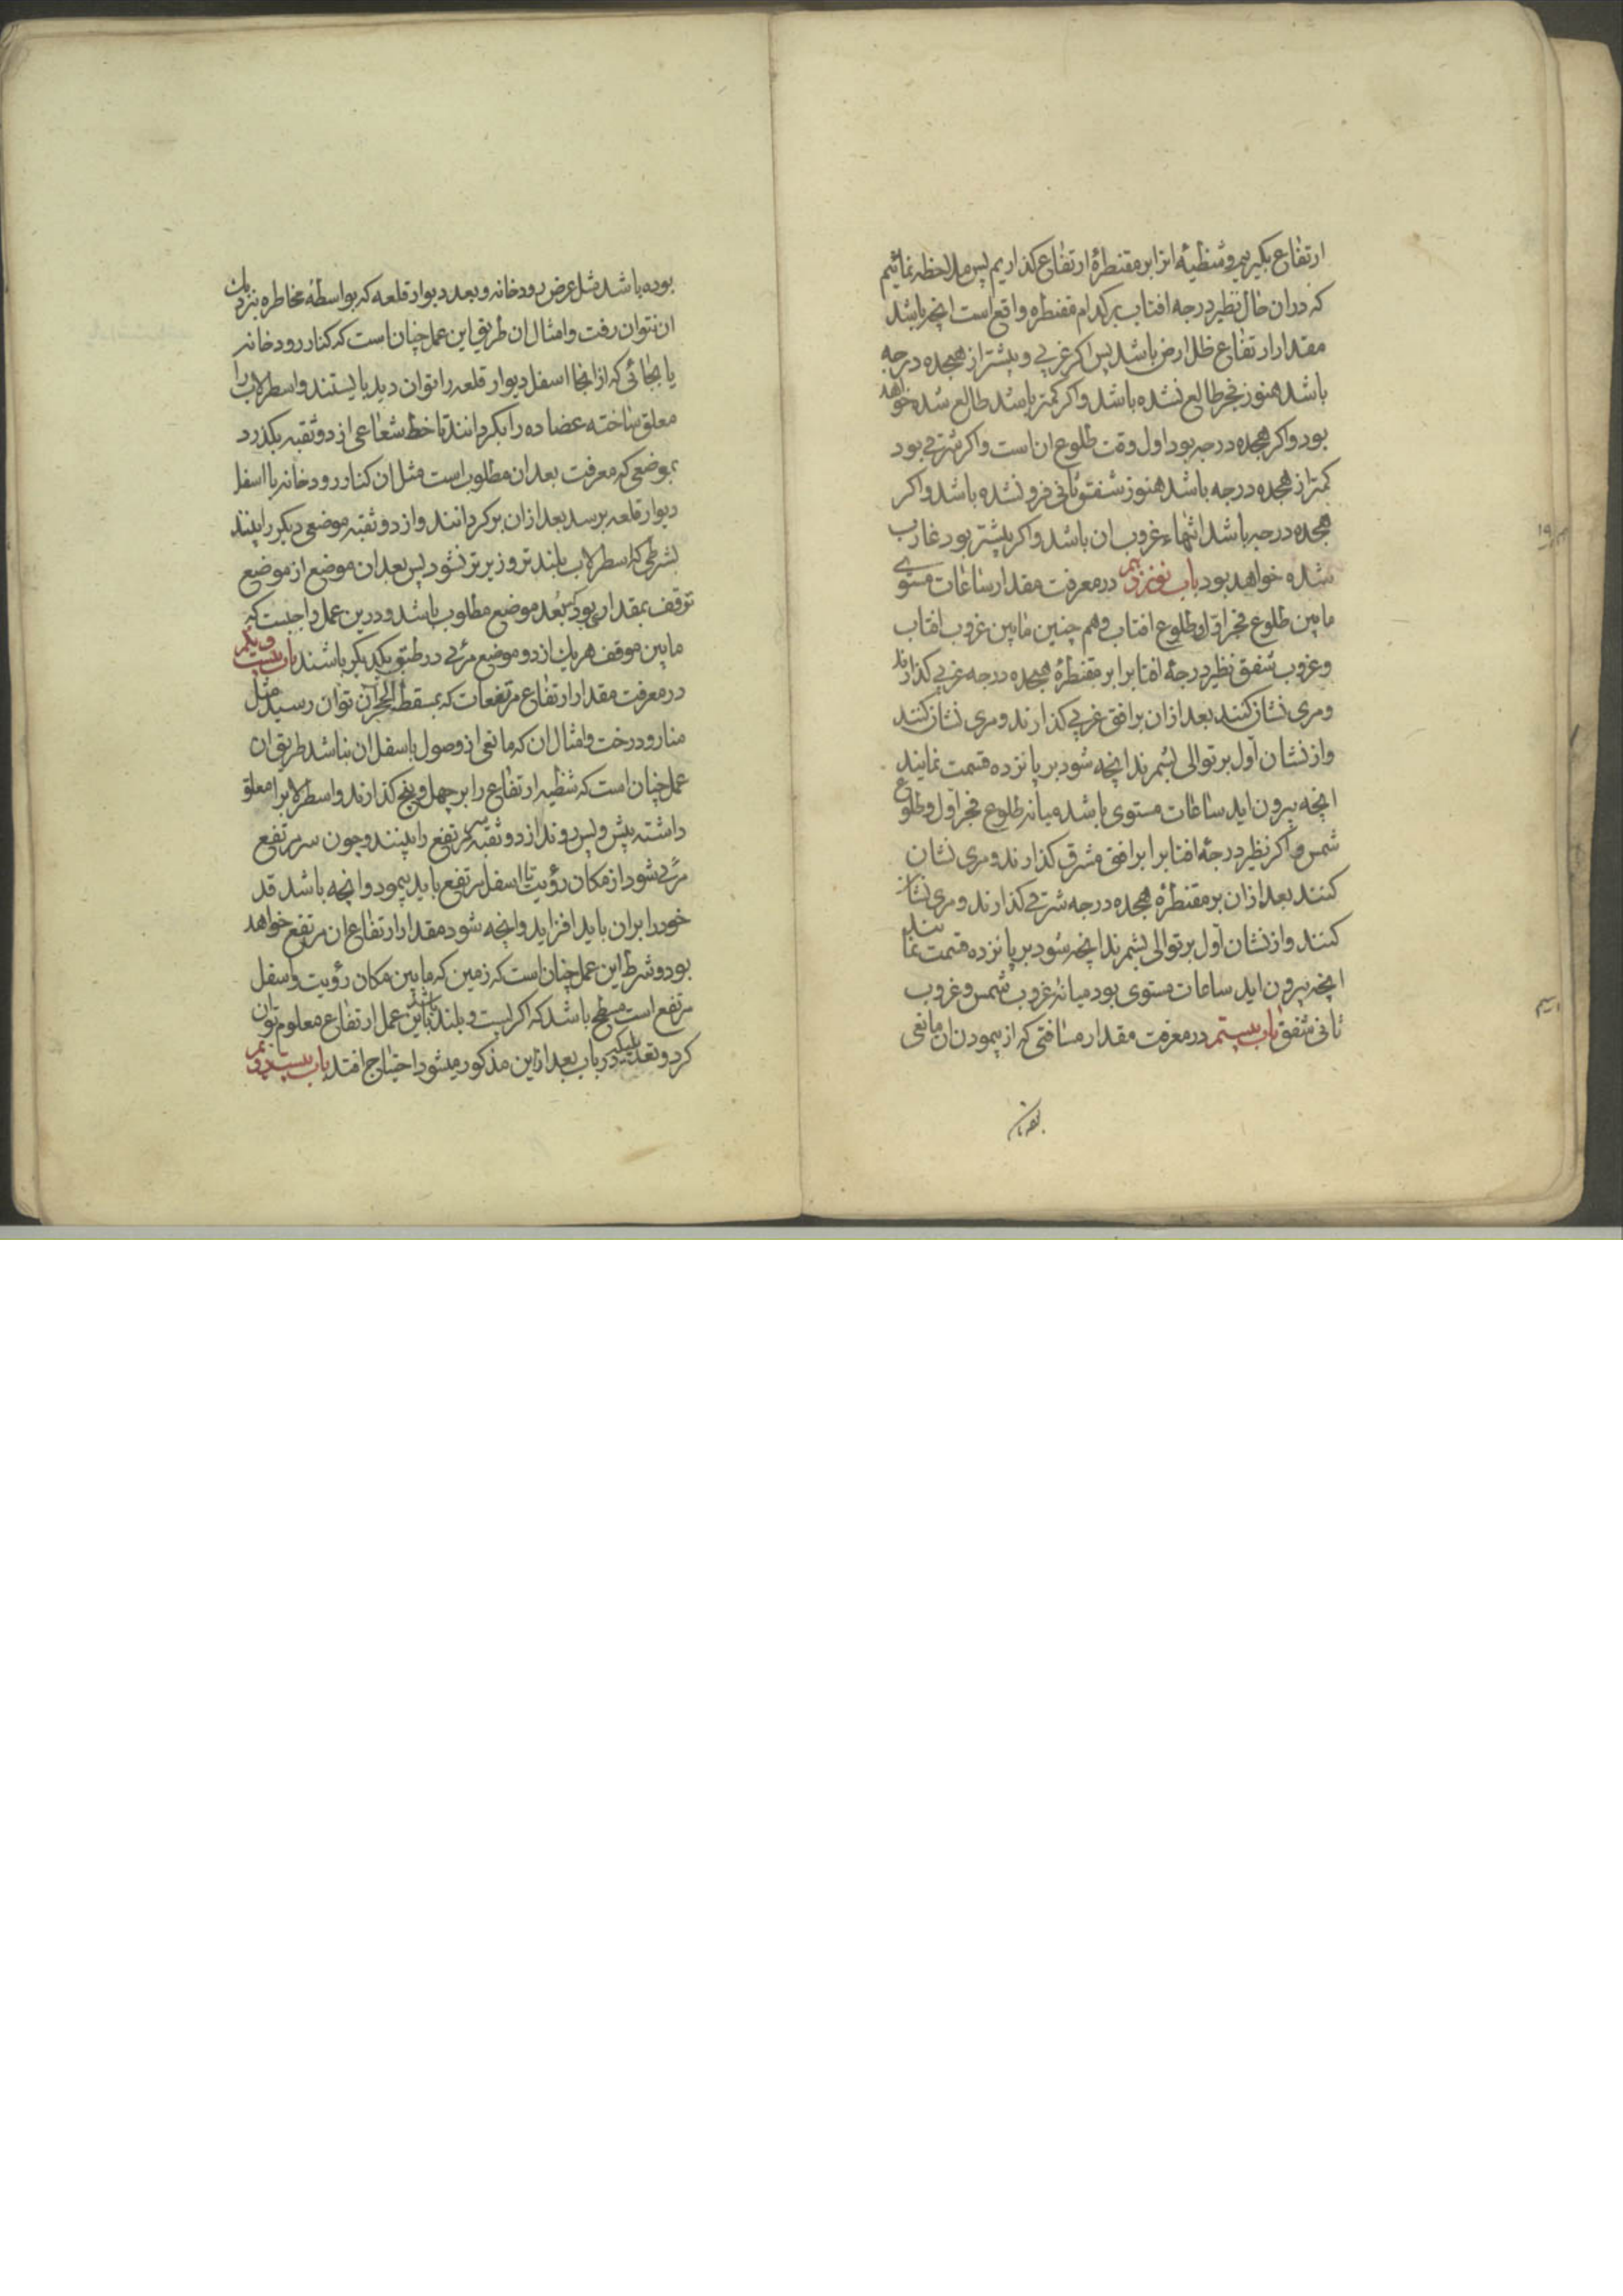 ارتفاع بکیریم و شظیهٔ انرا بر مقنطرهٔ ارتفاع کذاریم پس ملاحظه نمائیم
که دران حال نظیر درجه افتاب بر کدام مقنطره واقع است انچه باشد
مقدار ارتفاع ظل ارض باشد پس اکر غربی و بیشتر از هجده درجه
باشد هنوز فجر طالع نشده باشد و اکر کمتر باشد طالع شده خواهد
بود و اکر هجده درجه بود اول وقت طلوع ان است و اکر شرقی بود
کمتر از هجده درجه باشد هنوز شفق ثانی فرو نشده باشد و اکر
هجده درجه باشد انتهاء غروب ان باشد و اکر بیشتر بود غارب
شده خواهد بود باب نوزدهم در معرفت مقدار ساعات مستوی
مابین طلوع فجر اول و طلوع افتاب و هم چنین مابین غروب افتاب
و غروب شفق نظیر درجهٔ افتابرا بر مقنطرهٔ هجده درجه غربی کذارند
و مری نشان کنند بعد ازان بر افق غربی کذارند و مری نشان کنند
و از نشان اول بر توالی بشمرند انچه شود بر پانزده قسمت نمایند
انچه بیرون اید ساعات مستوی باشد میانه طلوع فجر اول و طلوع
شمس و اکر نظیر درجهٔ افتابرا بر افق مشرق کذارند و مری نشان
کنند بعد ازان بر مقنطرهٔ هجده درجه شرقی کذارند و مری نشان
کنند و از نشان اول بر توالی بشمرند انچه شود بر پانزده قسمت نمایند
انچه بیرون اید ساعات مستوی بود میانهٔ غروب شمس و غروب
ثانی شفق باب بیستم در معرفت مقدار مسافتی که از پیمودن ان مانعی
بوده باشد مثل عرض رودخانه و بعد دیوار قلعه که بواسطهٔ مخاطره نزدیک
ان نتوان رفت و امثال ان طریق این عمل چنان است که کنار رودخانه
یا بجائی که از انجا اسفل دیوار قلعه را توان دید بایستند و اسطرلاب را
معلق ساخته عضاده را بکردانند تا خط شعاعی از دو ثقبه بکذرد
بموضعی که معرفت بعد ان مطلوب است مثل ان کنار رودخانه یا اسفل
دیوار قلعه برسد بعد ازان برکردانند و از دو ثقبه موضعی دیکر را بینند
بشرطی که اسطرلاب بلندتر و زیرتر نشود پس بعد ان موضع از موضع
توقف بمقدار بعد موضع مطلوب باشد و درین عمل واجبست که
مابین موقف هر یک از دو موضع مرئی در طبق یکدیکر باشند باب بیست و یکم
در معرفت مقدار ارتفاع مرتفعات که بمسقط الحجر آن توان رسید مثل
منار و درخت و امثال ان که مانعی از وصول باسفل ان نباشد طریق ان
عمل چنان است که شظیه ارتفاع را بر چهل و پنج کذارند و اسطرلابرا معلق
داشته پیش و پس روند از دو ثقبه سر مرتفع را بینند و چون سر مرتفع
مرئی شود از مکان رؤیت تا اسفل مرتفع باید پیمود و انچه باشد قد
خود را بران باید افزاید و انچه شود مقدار ارتفاع ان مرتفع خواهد
بود و شرط این عمل چنان است که زمین که مابین مکان رؤیت و اسفل
مرتفع است مسطح باشد که اکر پست و بلند باشد باین عمل ارتفاع معلوم نتوان
کرد و در باب بعد ازین مذکور میشود احتیاج افتد باب بیست و دویم